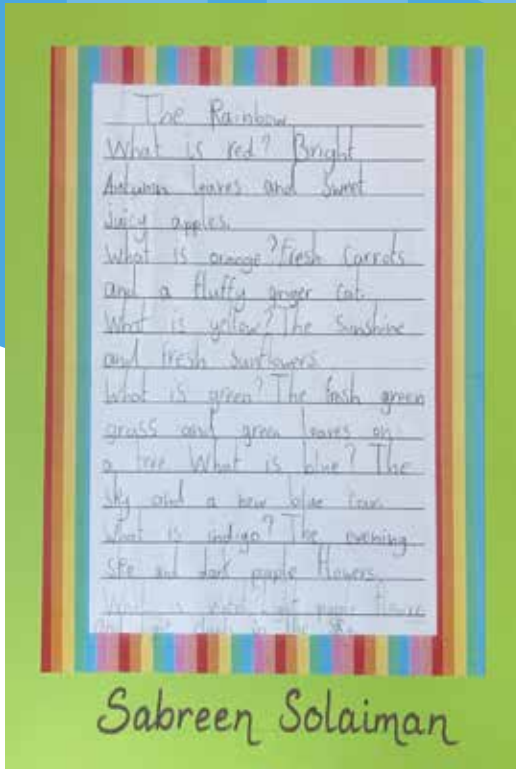 The Rainbow
What is red? Bright
Autumn leaves and sweet
Juicy apples.
What is orange? Fresh Carrots
and a fluffy ginger cat.
What is yellow? The Sunshine
and fresh sunflowers
What is green? The fresh green
grass and green leaves on
a tree. What is blue? The
sky and a new blue
What is indigo? The evening
and dark purple flowers.
What is
in the
Sabreen Solaiman